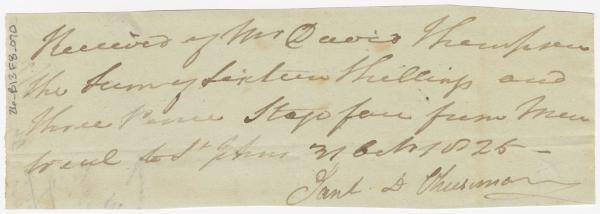 Received of Mr David Thompson
the Sum of Sixteen Shillings and
three Pence Stage fare from Mon
treal to St Johns 31 Oct 1825 —
D
26-B13 F8-070